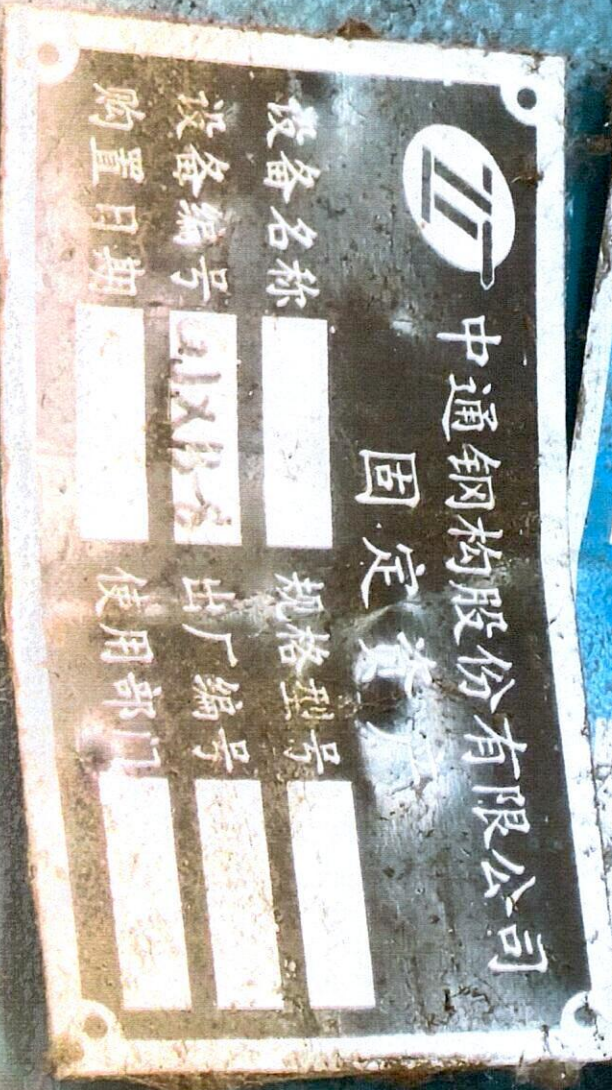 中通钢构股份有限公司
固定资产
设备名称 规格型号
设备编号 出厂编号
购置日期 使用部门